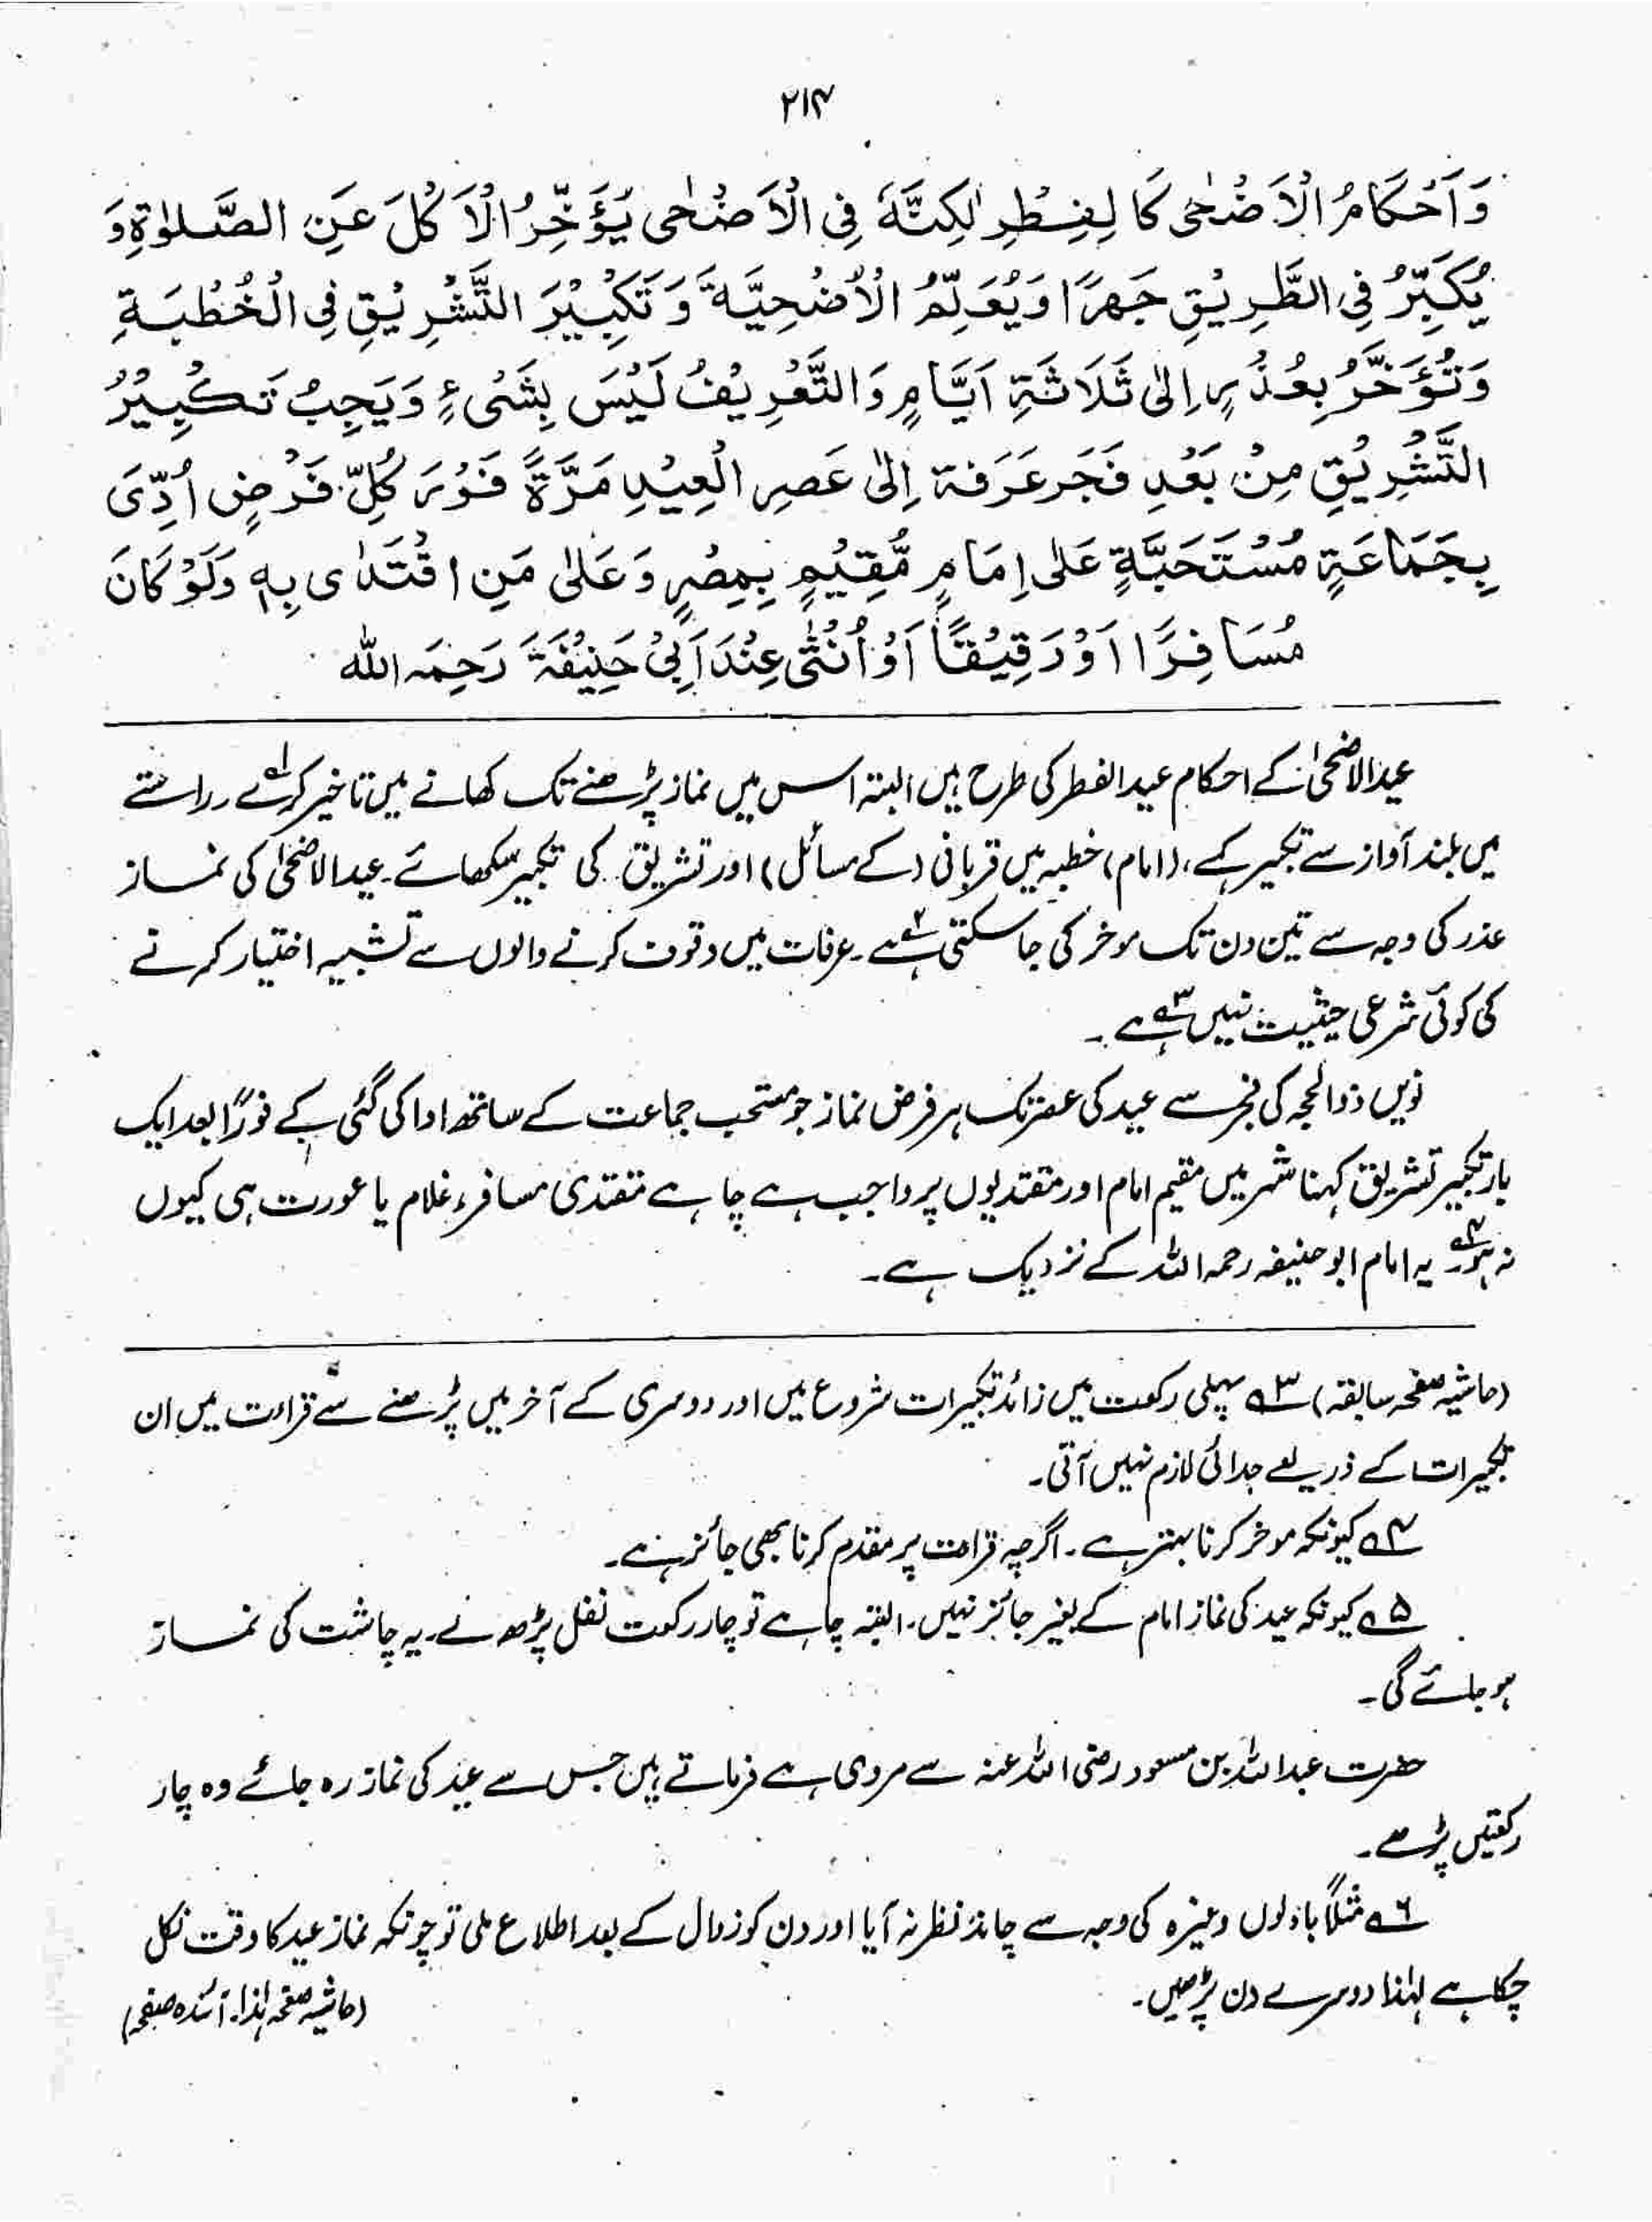 ۲۱۴
وَاَحْكَامُ الْاَضْحٰى كَالْفِطْرِ لٰكِنَّهٗ فِى الْاَضْحٰى يُؤَخِّرُ الْاَكْلَ عَنِ الصَّلٰوةِ وَ
يُكَبِّرُ فِى الطَّرِيْقِ جَهْرًا وَيُعَلِّمُ الْاُضْحِيَّةَ وَتَكْبِيْرَ التَّشْرِيْقِ فِى الْخُطْبَةِ
وَتُؤَخَّرُ بِعُذْرٍ اِلٰى ثَلَاثَةِ اَيَّامٍ وَالتَّعْرِيْفُ لَيْسَ بِشَىْءٍ وَيَجِبُ تَكْبِيْرُ
التَّشْرِيْقِ مِنْ بَعْدِ فَجَرِ عَرَفَة اِلٰى عَصرِ الْعِيْدِ مَرَّةً فَوْرَ كُلِّ فَرْضٍ اُدِّىَ
بِجَمَاعَةٍ مُسْتَحَبَّةٍ عَلٰى اِمَامٍ مُّقِيْمٍ بِمِصْرٍ وَعَلٰى مَنِ اقْتَدٰى بِهٖ وَلَوْ كَانَ
مُسَافِرًا اَوْ رَقِيْقًا اَوْ اُنْثٰى عِنْدَ اَبِىْ حَنِيْفَةَ رَحِمَہ اللّٰہ
عیدالاضحیٰ کے احکام عیدالفطر کی طرح ہیں البتہ اس میں نماز پڑھنے تک کھانے میں تاخیر کرے ۱ـ راستے
میں بلند آواز سے تکبیر کہے، (امام) خطبہ میں قربانی (کے مسائل) اور تشریق کی تکبیر سکھائے۔ عیدالاضحیٰ کی نماز
عذر کی وجہ سے تین دن تک موخر کی جا سکتی ہے ۲ـ۔ عرفات میں وقوف کرنے والوں سے تشبیہ اختیار کرنے
کی کوئی شرعی حیثیت نہیں ہے ۳ـ۔
نویں ذوالحجہ کی فجر سے عید کی عصر تک ہر فرض نماز جو مستحب جماعت کے ساتھ ادا کی گئی ہے کے فورًا بعد ایک
بار تکبیر تشریق کہنا شہر میں مقیم امام اور مقتدیوں پر واجب ہے چاہے مقتدی مسافر، غلام یا عورت ہی کیوں
نہ ہو ۴ـ یہ امام ابوحنیفہ رحمہ اللہ کے نزدیک ہے۔
(حاشیہ صفحہ سابقہ) ۳ـ پہلی رکعت میں زائد تکبیرات شروع میں اور دوسری کے آخر میں پڑھنے سے قراءت میں ان
تکبیرات کے ذریعے جدائی لازم نہیں آتی۔
۴ـ کیونکہ موخر کرنا بہتر ہے۔ اگرچہ قراءت پر مقدم کرنا بھی جائز ہے۔
۵ـ کیونکہ عید کی نماز امام کے بغیر جائز نہیں۔ البتہ چاہے تو چار رکعت نفل پڑھ لے۔ یہ چاشت کی نماز
ہو جائے گی۔
حضرت عبداللہ بن مسعود رضی اللہ عنہ سے مروی ہے فرماتے ہیں جس سے عید کی نماز رہ جائے وہ چار
رکعتیں پڑھے۔
۶ـ مثلاً بادلوں وغیرہ کی وجہ سے چاند نظر نہ آیا اور دن کو زوال کے بعد اطلاع ملی تو چونکہ نماز عید کا وقت نکل
چکا ہے لہٰذا دوسرے دن پڑھیں۔ (حاشیہ صفحہ ہٰذا۔ آئندہ صفحہ)